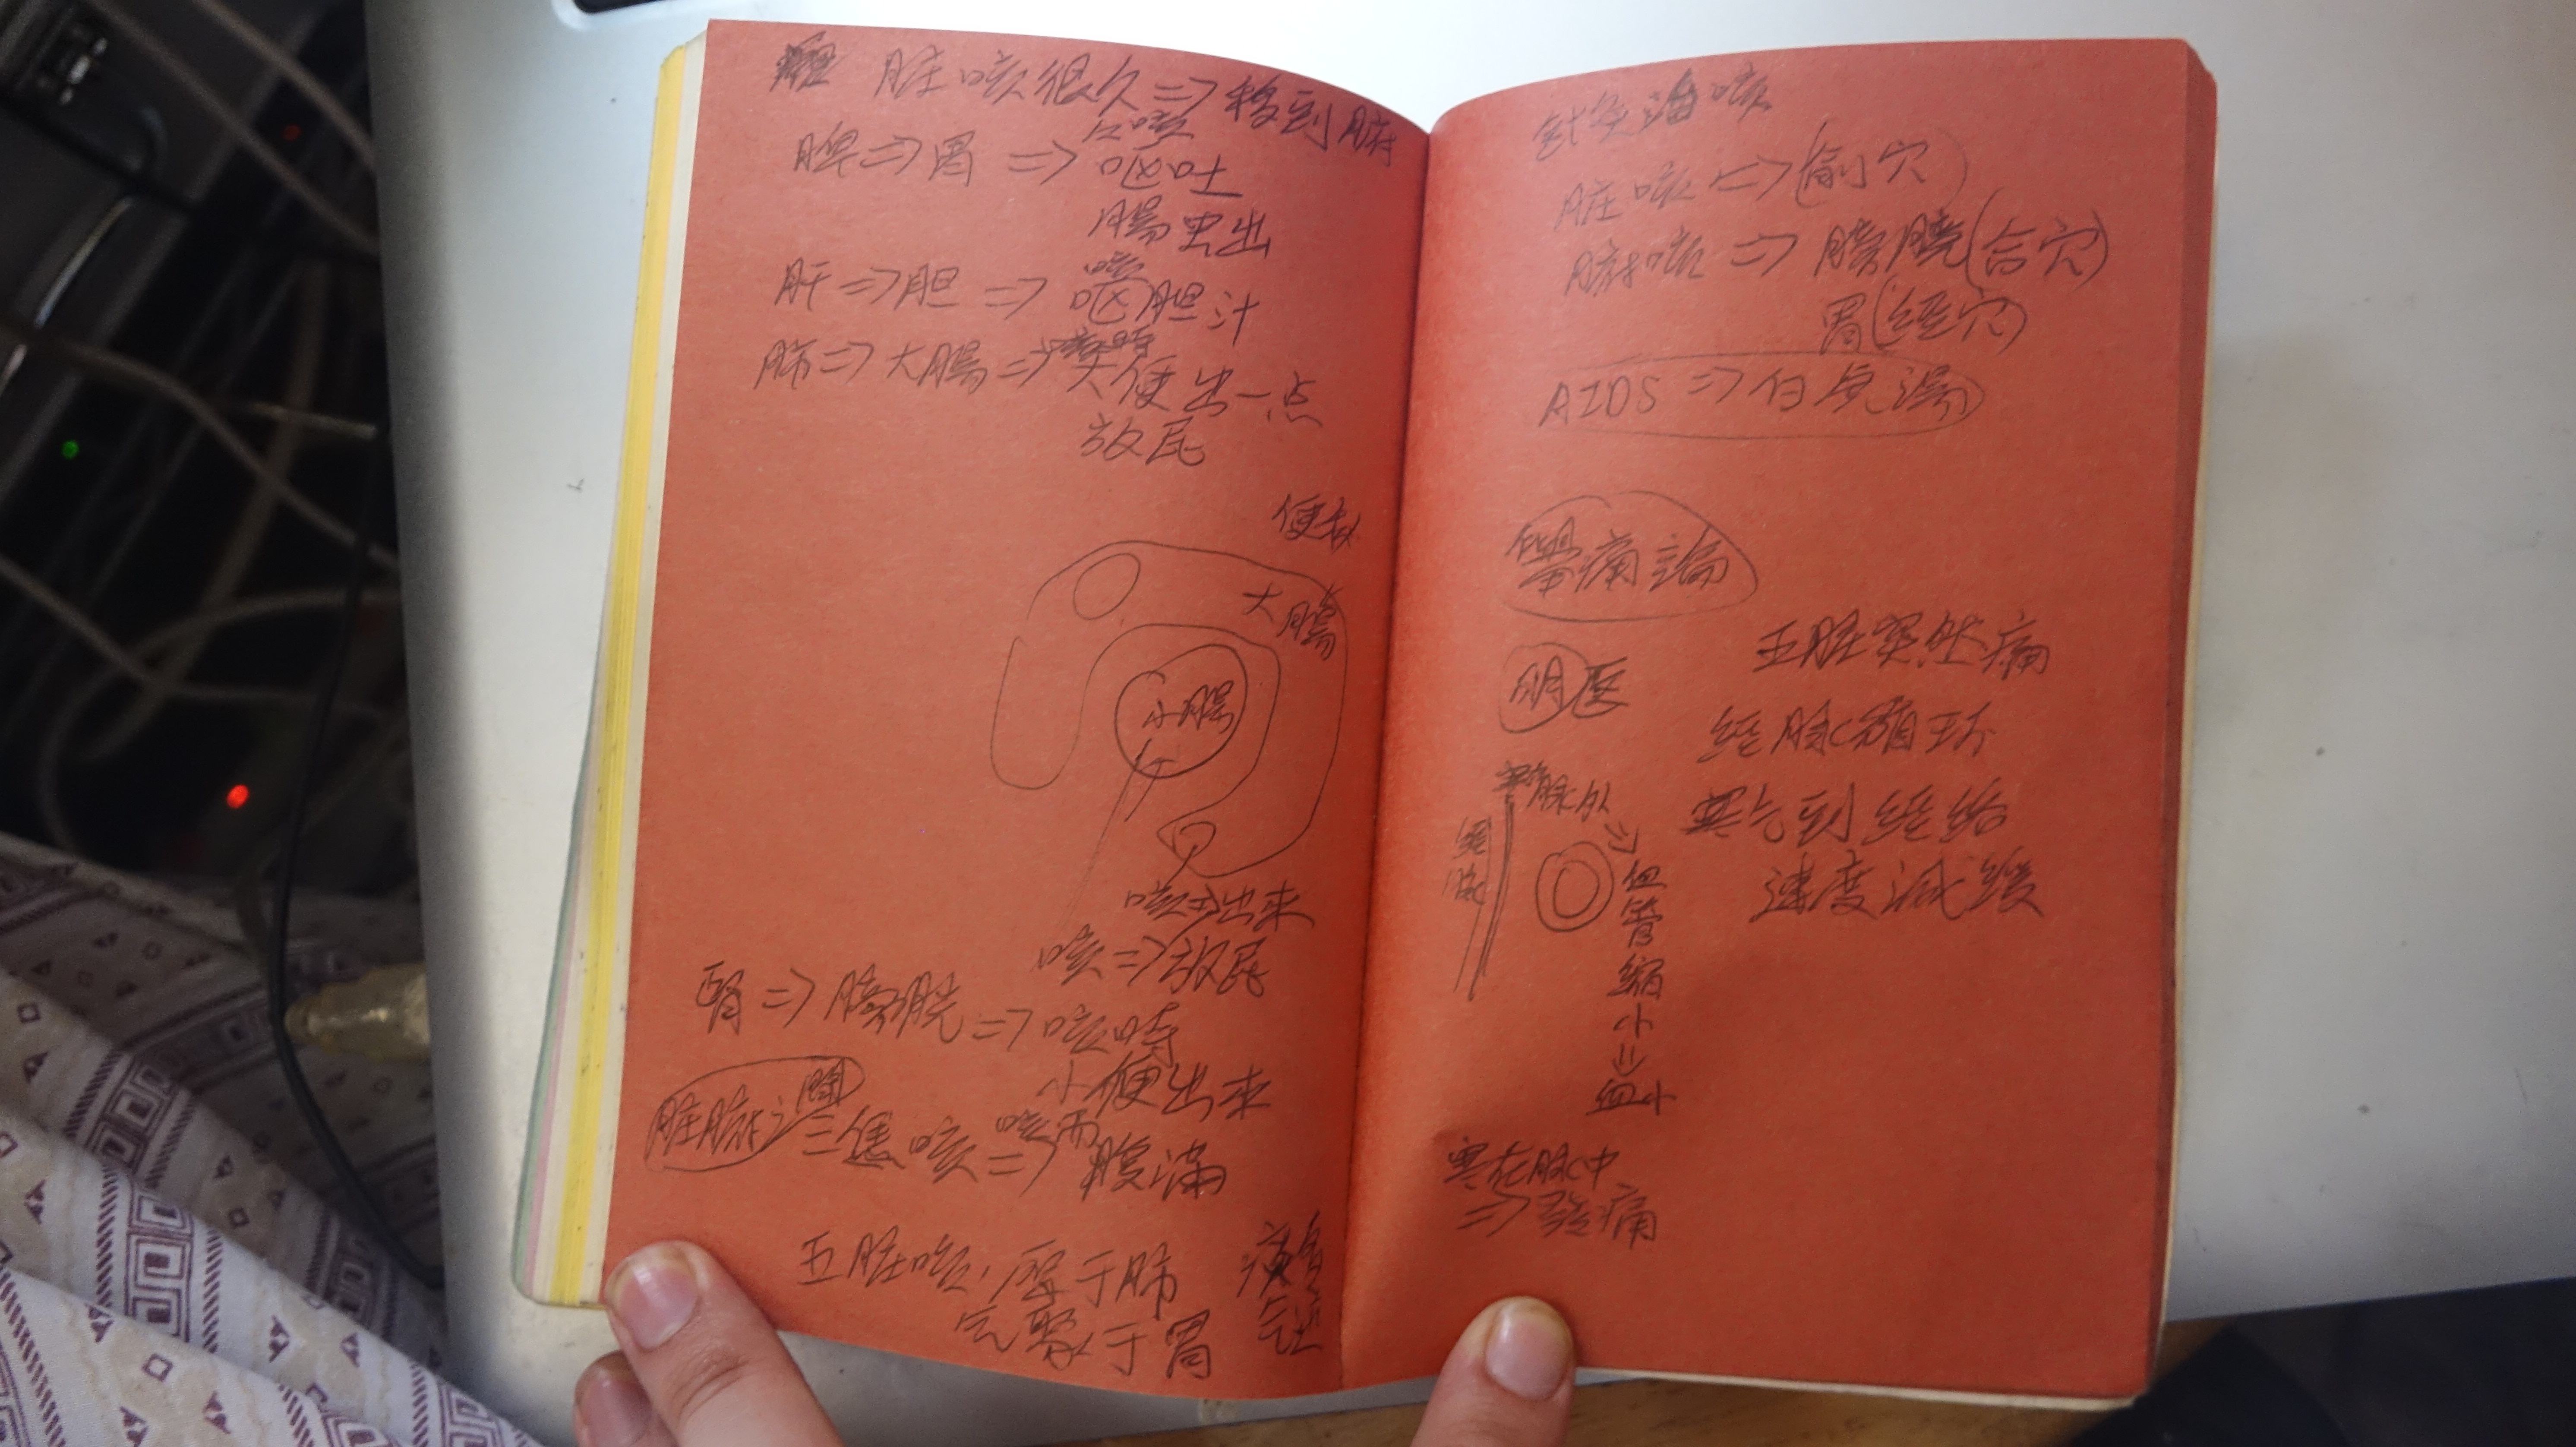 脏咳很久⇒移到腑
脾⇒胃⇒呕吐
腸虫出
肝⇒胆⇒咳呕胆汁
肺⇒大腸⇒
便出一点
放屁
大腸
小腸
咳出来
咳⇒放屁
肾⇒膀胱⇒咳时
小便出来
脏腑之間
三焦咳⇒咳而腹满
五脏咳,
于肺
聚于胃
针灸治咳
脏咳⇒(俞穴)
腑咳⇒膀胱(合穴)
胃(经穴)
AIDS⇒白虎湯
舉痛論
明医
五脏突然痛
经脉循环
寒气到经络
速度減缓
寒脉外
经脉
血管缩小⇒血小
寒在脉中
⇒痛